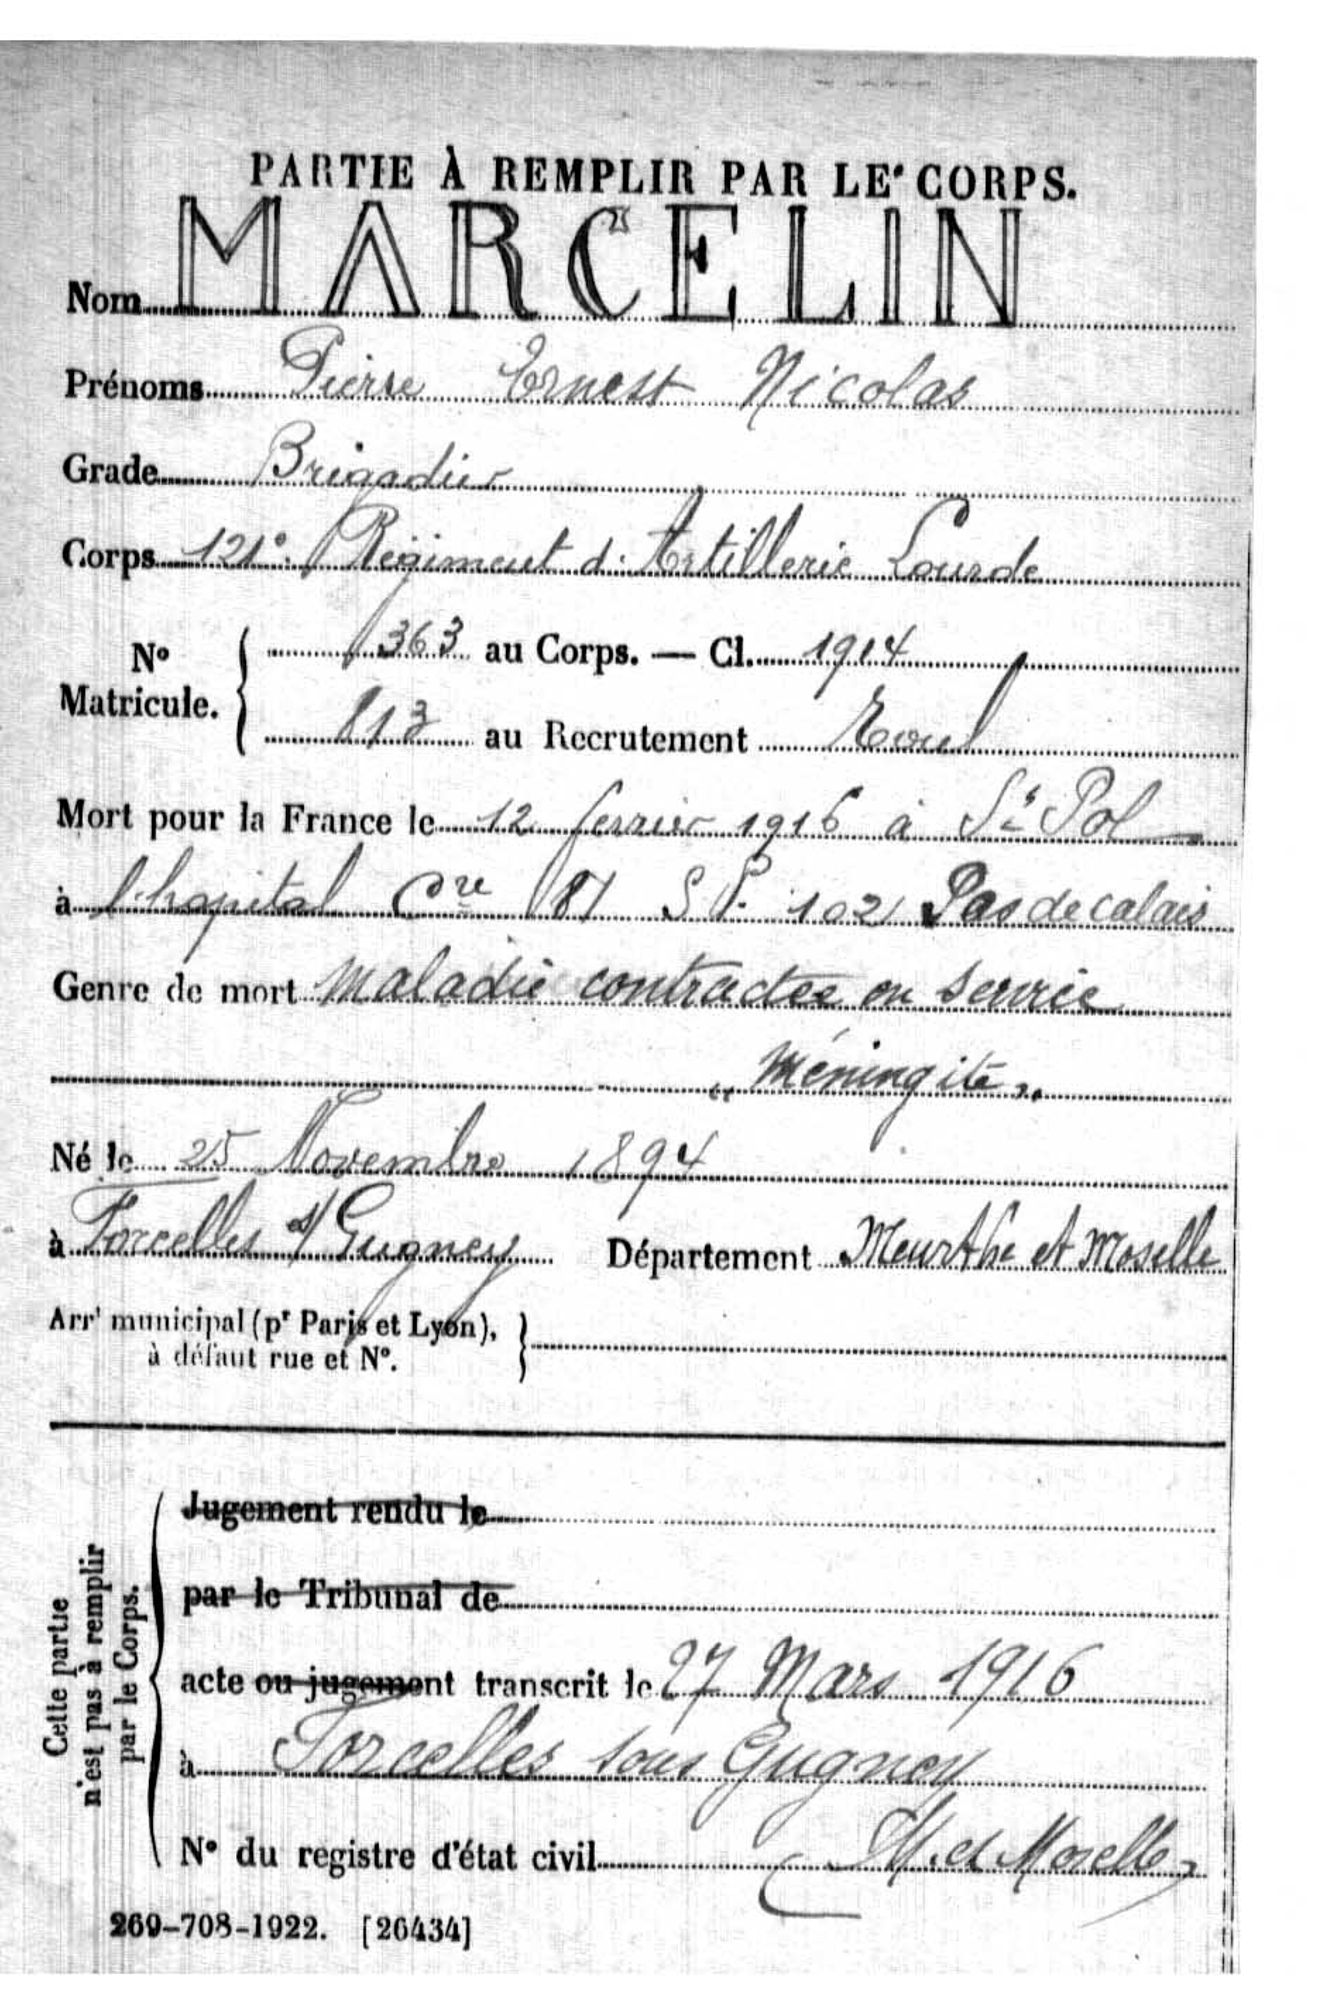 PARTIE À REMPLIR PAR LE CORPS.
Nom MARCELIN
Prénoms Pierre Ernest Nicolas
Grade Brigadier
Corps 121e Régiment d'Artillerie Lourde
No Matricule. { 363 au Corps. — Cl. 1914
813 au Recrutement Toul
Mort pour la France le 12 fevrier 1916 à St Pol
à l'hopital Cre 81 S P. 102 Pas de calais
Genre de mort Maladie contractee en service
"Méningite"
Né le 25 Novembre 1894
à Forcelles s/ Gugney Département Meurthe et Moselle
Arrt municipal (pr Paris et Lyon),
à défaut rue et No.
Cette partie
n'est pas à remplir
par le Corps.
Jugement rendu le
par le Tribunal de
acte ou jugement transcrit le 27 Mars 1916
à Forcelles sous Gugney
No du registre d'état civil (M. et Moselle)
269-708-1922. [26434]